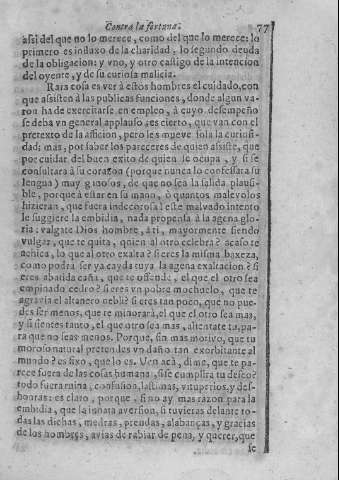 Contra la fortuna. 77
assi del que no lo merece, como del que lo merece: lo
primero es influxo de la charidad, lo segundo deuda
de la obligacion: y vno, y otro castigo de la intencion
del oyente, y de su curiosa malicia.
Rara cosa es ver à estos hombres el cuidado, con
que assisten à las publicas funciones, donde algun va-
ron ha de exercitarse en empleo, à cuyo desempeño
se deba vn general applauso; es cierto, que van con el
pretexto de la aficion, pero les mueve sola la curiosi-
dad; mas, por saber los pareceres de quien assiste, que
por cuidar del buen exito de quien se ocupa, y si se
consultara à su corazon (porque nunca lo confessara su
lengua) muy ginosos, de que no sea la salida plausi-
ble, porque à estar en su mano, ò quantos malevolos
hizieran, que fuera indecorosa! este malvado intento
le suggiere la embidia, nada propensa à la agena glo-
ria: valgate Dios hombre, à ti, mayormente siendo
vulgar, que te quita, quien al otro celebra? acaso te
achica, lo que al otro exalta? si eres la misma baxeza,
como podra ser ya cayda tuya la agena exaltacion? si
eres abatida caña, que te ofende, el que el otro sea
empinado cedro? si eres vn pobre mochuelo, que te
agravia el altanero neblì? si eres tan poco, que no pue-
des ser menos, que te minorarà, el que el otro sea mas,
y si sientes tanto, el que otro sea mas, alientate tu, pa-
ra que no seas menos. Porque, sin mas motivo, que tu
moroso natural pretendes vn daño tan exorbitante al
mundo? es fixo, que lo es. Ven acà, dime, que te pa-
rece fuera de las cosas humanas, si se cumpliera tu deseo?
todo fuera ruina, confusion, lastimas, vituperios, y des-
honras: es claro, porque, si no ay mas razon para la
embidia, que la innata aversion, si tuvieras delante to-
das las dichas, medras, prendas, alabanças, y gracias
de los hombres, avias de rabiar de pena, y querer, que
se